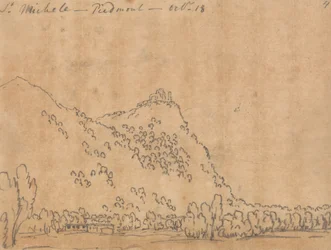 St Michele — Piedmont — Octr 18